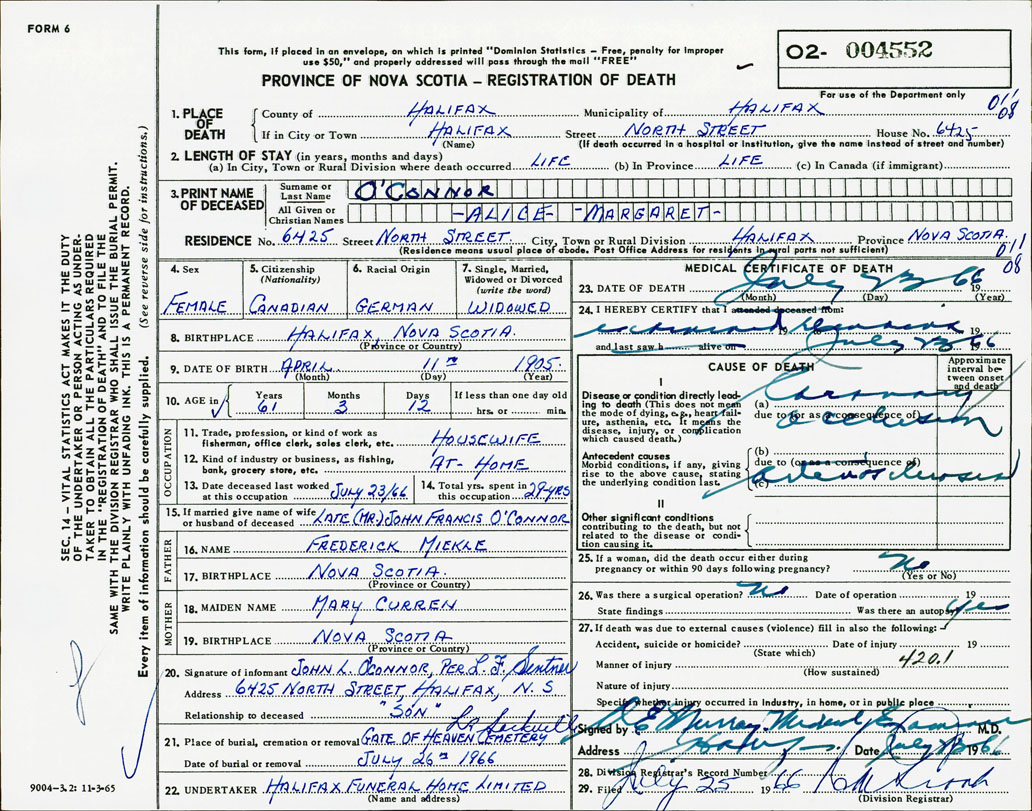 FORM 6
This form, if placed in an envelope, on which is printed "Dominion Statistics – Free, penalty for improper
use $50," and properly addressed will pass through the mail "FREE"
PROVINCE OF NOVA SCOTIA – REGISTRATION OF DEATH
02- 004552
For use of the Department only
011
08
1. PLACE OF DEATH
County of HALIFAX Municipality of HALIFAX
If in City or Town HALIFAX Street NORTH STREET House No. 6425
(Name) (If death occurred in a hospital or Institution, give the name instead of street and number)
2. LENGTH OF STAY (in years, months and days)
(a) In City, Town or Rural Division where death occurred LIFE (b) In Province LIFE (c) In Canada (if immigrant)
3. PRINT NAME OF DECEASED
Surname or Last Name O'CONNOR
All Given or Christian Names -ALICE- -MARGARET-
RESIDENCE No. 6425 Street NORTH STREET City, Town or Rural Division HALIFAX Province NOVA SCOTIA.
(Residence means usual place of abode. Post Office Address for residents in rural parts not sufficient)
011
08
4. Sex
FEMALE
5. Citizenship
(Nationality)
CANADIAN
6. Racial Origin
GERMAN
7. Single, Married,
Widowed or Divorced
(write the word)
WIDOWED
8. BIRTHPLACE HALIFAX, NOVA SCOTIA.
(Province or Country)
9. DATE OF BIRTH APRIL 11TH 1905.
(Month) (Day) (Year)
10. AGE in
Years Months Days If less than one day old
61 3 12 hrs. or min.
OCCUPATION
11. Trade, profession, or kind of work as
fisherman, office clerk, sales clerk, etc. HOUSEWIFE
12. Kind of industry or business, as fishing,
bank, grocery store, etc. AT-HOME
13. Date deceased last worked
at this occupation JULY 23/66
14. Total yrs. spent in
this occupation 29 YRS
15. If married give name of wife
or husband of deceased LATE (MR) JOHN FRANCIS O'CONNOR
FATHER
16. NAME FREDERICK MIEKLE
17. BIRTHPLACE NOVA SCOTIA.
(Province or Country)
MOTHER
18. MAIDEN NAME MARY CURREN
19. BIRTHPLACE NOVA SCOTIA
(Province or Country)
20. Signature of informant JOHN L. O'CONNOR, PER L. F.
Address 6425 NORTH STREET, HALIFAX, N. S
Relationship to deceased "SON"
21. Place of burial, cremation or removal GATE OF HEAVEN CEMETERY Lr Sackville
Date of burial or removal JULY 26TH 1966
22. UNDERTAKER HALIFAX FUNERAL HOME LIMITED
(Name and address)
MEDICAL CERTIFICATE OF DEATH
23. DATE OF DEATH July 23 66
(Month) (Day) (Year)
24. I HEREBY CERTIFY that I attended deceased from:
19 19
and last saw h alive on July 23 1966
CAUSE OF DEATH
Approximate
interval be-
tween onset
and death
I
Disease or condition directly lead-
ing to death (This does not mean
the mode of dying, e.g., heart fail-
ure, asthenia, etc. It means the
disease, injury, or complication
which caused death.)
(a) Coronary
due to (or as a consequence of)
occlusion
Antecedent causes
Morbid conditions, if any, giving
rise to the above cause, stating
the underlying condition last.
(b)
due to (or as a consequence of)
(c) arteriosclerosis
II
Other significant conditions
contributing to the death, but not
related to the disease or condi-
tion causing it.
25. If a woman, did the death occur either during
pregnancy or within 90 days following pregnancy? No
(Yes or No)
26. Was there a surgical operation? No Date of operation 19
State findings Was there an autopsy yes
27. If death was due to external causes (violence) fill in also the following:
Accident, suicide or homicide? Date of injury 19
(State which)
420.1
Manner of injury
(How sustained)
Nature of injury
Specify whether injury occurred in Industry, in home, or in public place
Signed by Murray Medical Examiner M.D.
Address Date July 1966
28. Division Registrar's Record Number
29. Filed July 25 1966
(Division Registrar)
SEC. 14 – VITAL STATISTICS ACT MAKES IT THE DUTY
OF THE UNDERTAKER OR PERSON ACTING AS UNDER-
TAKER TO OBTAIN ALL THE PARTICULARS REQUIRED
IN THE "REGISTRATION OF DEATH" AND TO FILE THE
SAME WITH THE DIVISION REGISTRAR WHO SHALL ISSUE THE BURIAL PERMIT.
WRITE PLAINLY WITH UNFADING INK. THIS IS A PERMANENT RECORD.
Every item of information should be carefully supplied. (See reverse side for instructions.)
9004-3.2: 11-3-65